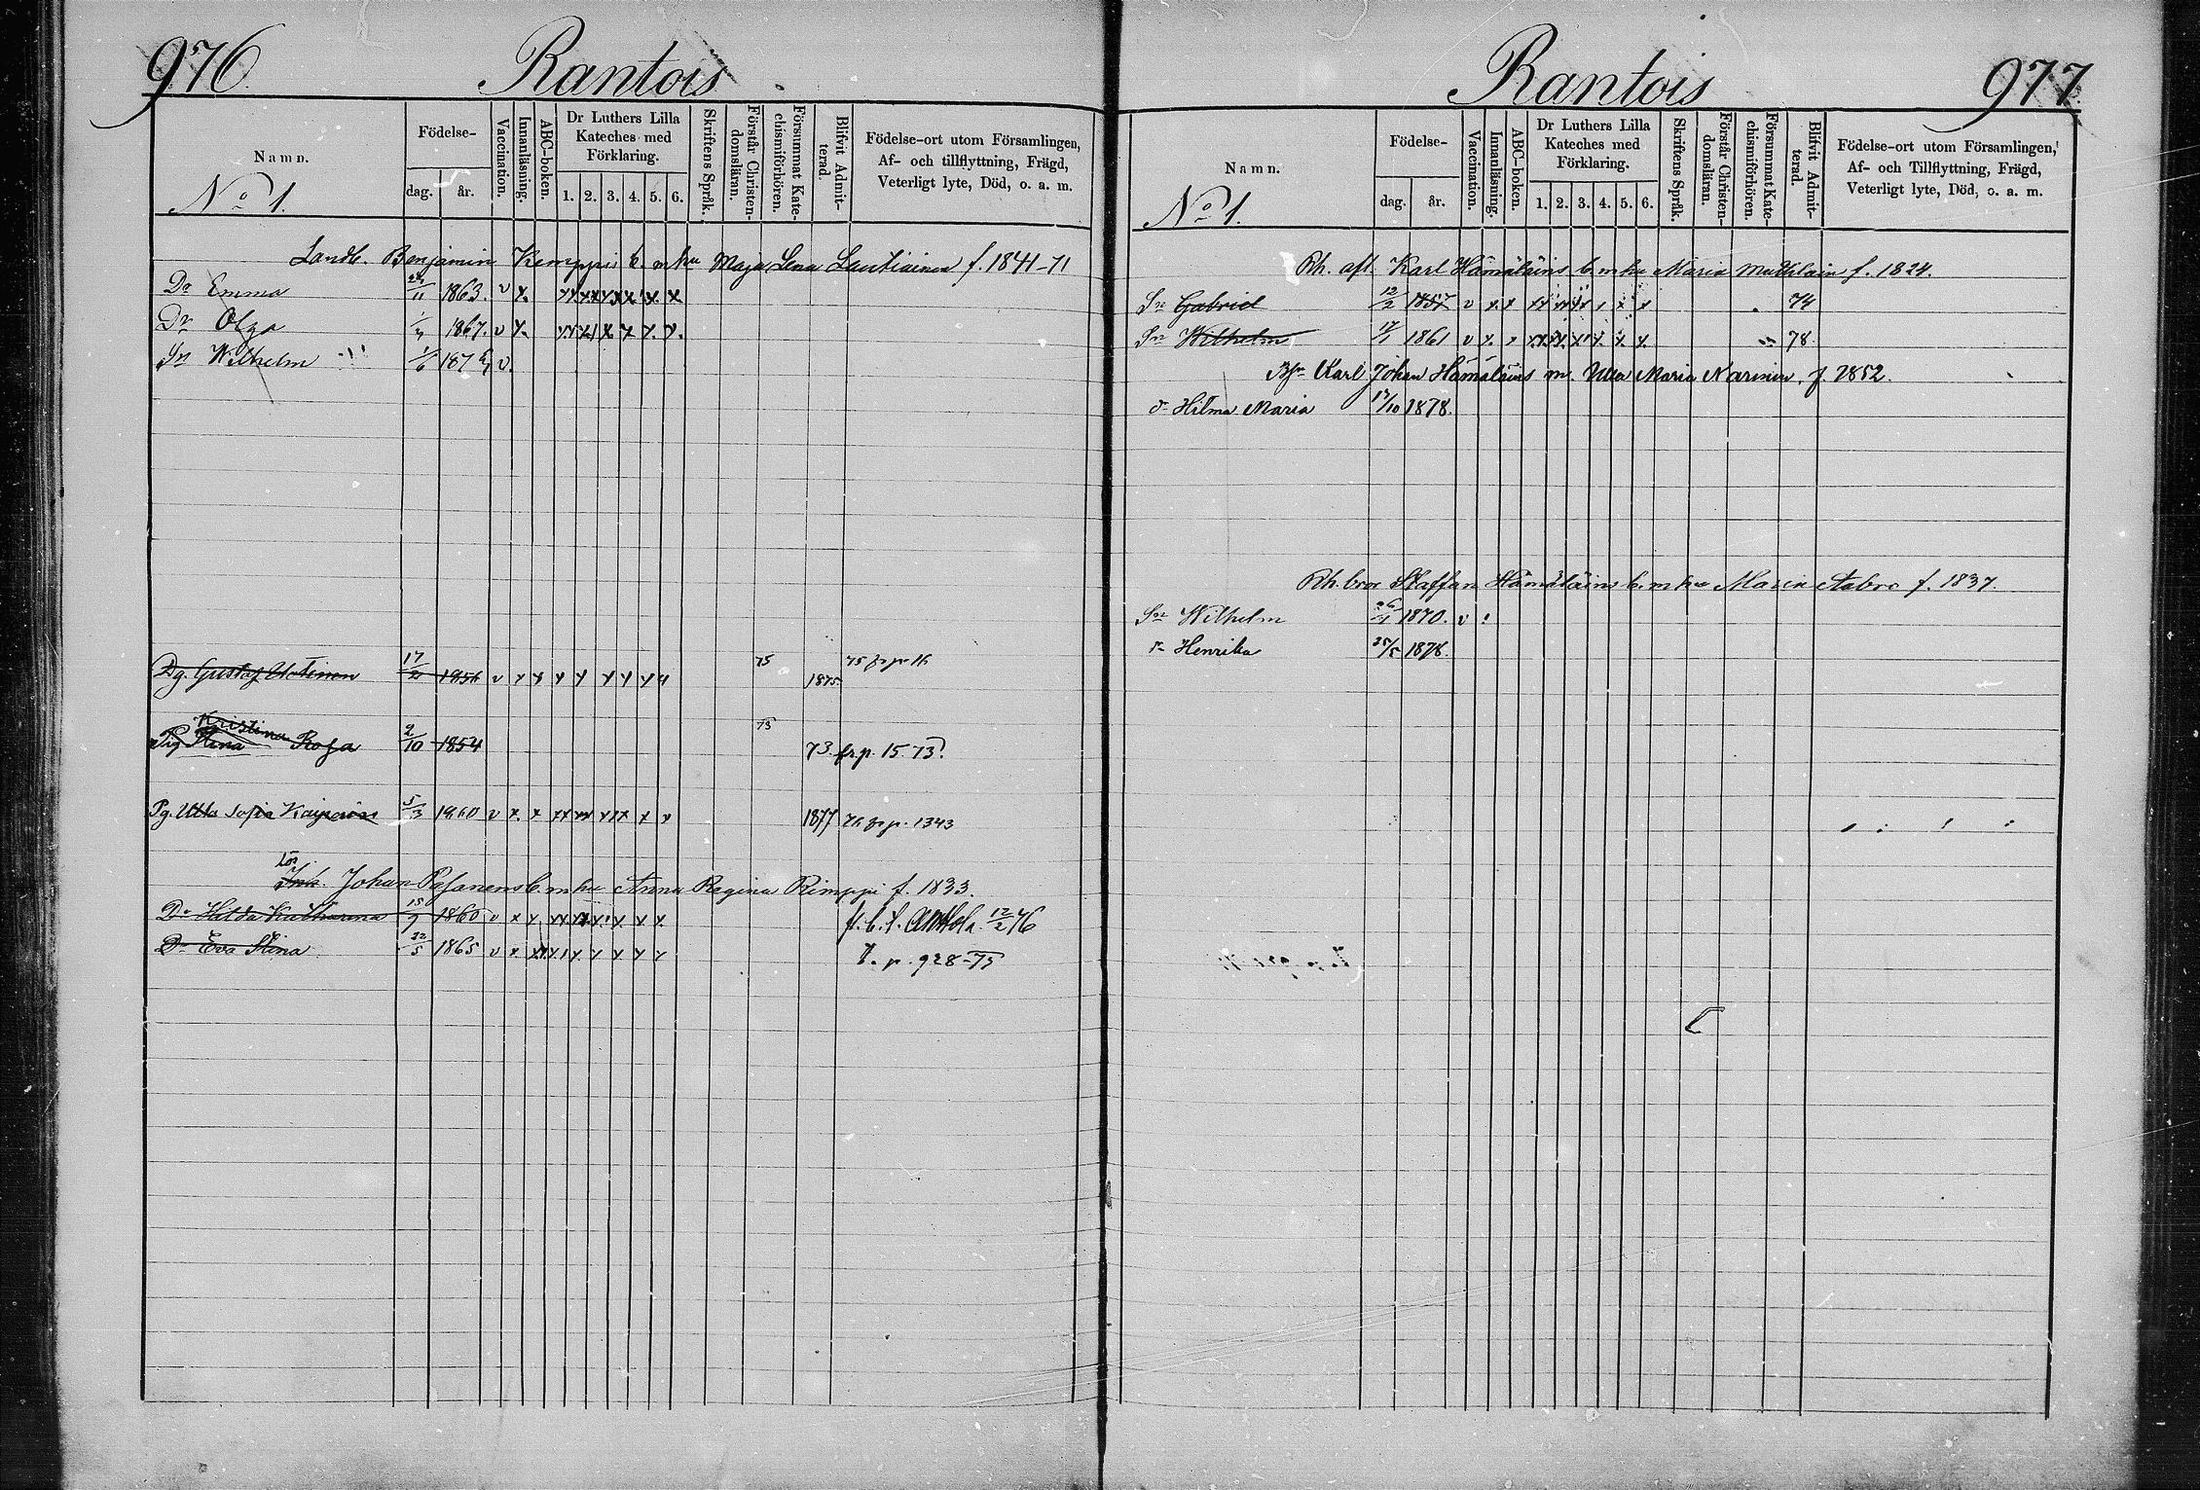 976
Rantois
Namn.
Födelse-
dag.
år.
Vaccination.
Innanläsning.
ABC-boken.
Dr Luthers Lilla
Kateches med
Förklaring.
1. 2. 3. 4. 5. 6.
Skriftens Språk.
Förstår Christen-
domsläran.
Försummat Kate-
chismiförhören.
Blifvit Admit-
terad.
Födelse-ort utom Församlingen,
Af- och tillflyttning, Frägd,
Veterligt lyte, Död, o. a. m.
No 1.
Landb. Benjamin Kemppis b. m hu Maja Lena Lautiainen f. 1841-71
Dr Emma 24/11 1863. v x.
Dr Olga 1867. v x.
Sn Wilhelm 1/6 187 v.
Dg. Gustaf 17 1856 v 75 1875 75 fr p. 16
Kristina
Pig Stina Rosa 9/10 1854 73 73. fr. p. 15-73.
Pg. Ulla Sofia 5/3 1860 v x x 1877 fr p. 1343
Johan Pasanens b. m hu Anna Regina Rimppi f. 1833.
Dr Hilda Katharina 15/9 1860 v x x f. b. t. Anttola 12/2 76
Dr Eva Stina 22/5 1865 v x T. p. 928-75
Rantois
977
Namn.
Födelse-
dag.
år.
Vaccination.
Innanläsning.
ABC-boken.
Dr Luthers Lilla
Kateches med
Förklaring.
1. 2. 3. 4. 5. 6.
Skriftens Språk.
Förstår Christen-
domsläran.
Försummat Kate-
chismiförhören.
Blifvit Admit-
terad.
Födelse-ort utom Församlingen,
Af- och Tillflyttning, Frägd,
Veterligt lyte, Död, o. a. m.
No 1.
Rh. afl. Karl Hämäläins b. m hu Maria f. 1824.
Sn Gabriel 12/2 1857 v x x 74
Sn Wilhelm 17/1 1861 v x. x 78
Karl Johan Hämäläins m. Ulla Maria Narinen. f. 1852.
d- Hilma Maria 17/10 1878.
Rh. bror Staffan Hämäläins b. m hu Maria f. 1837.
Sn Wilhelm 26/1 1870. v
Henrika 25/5 1878.